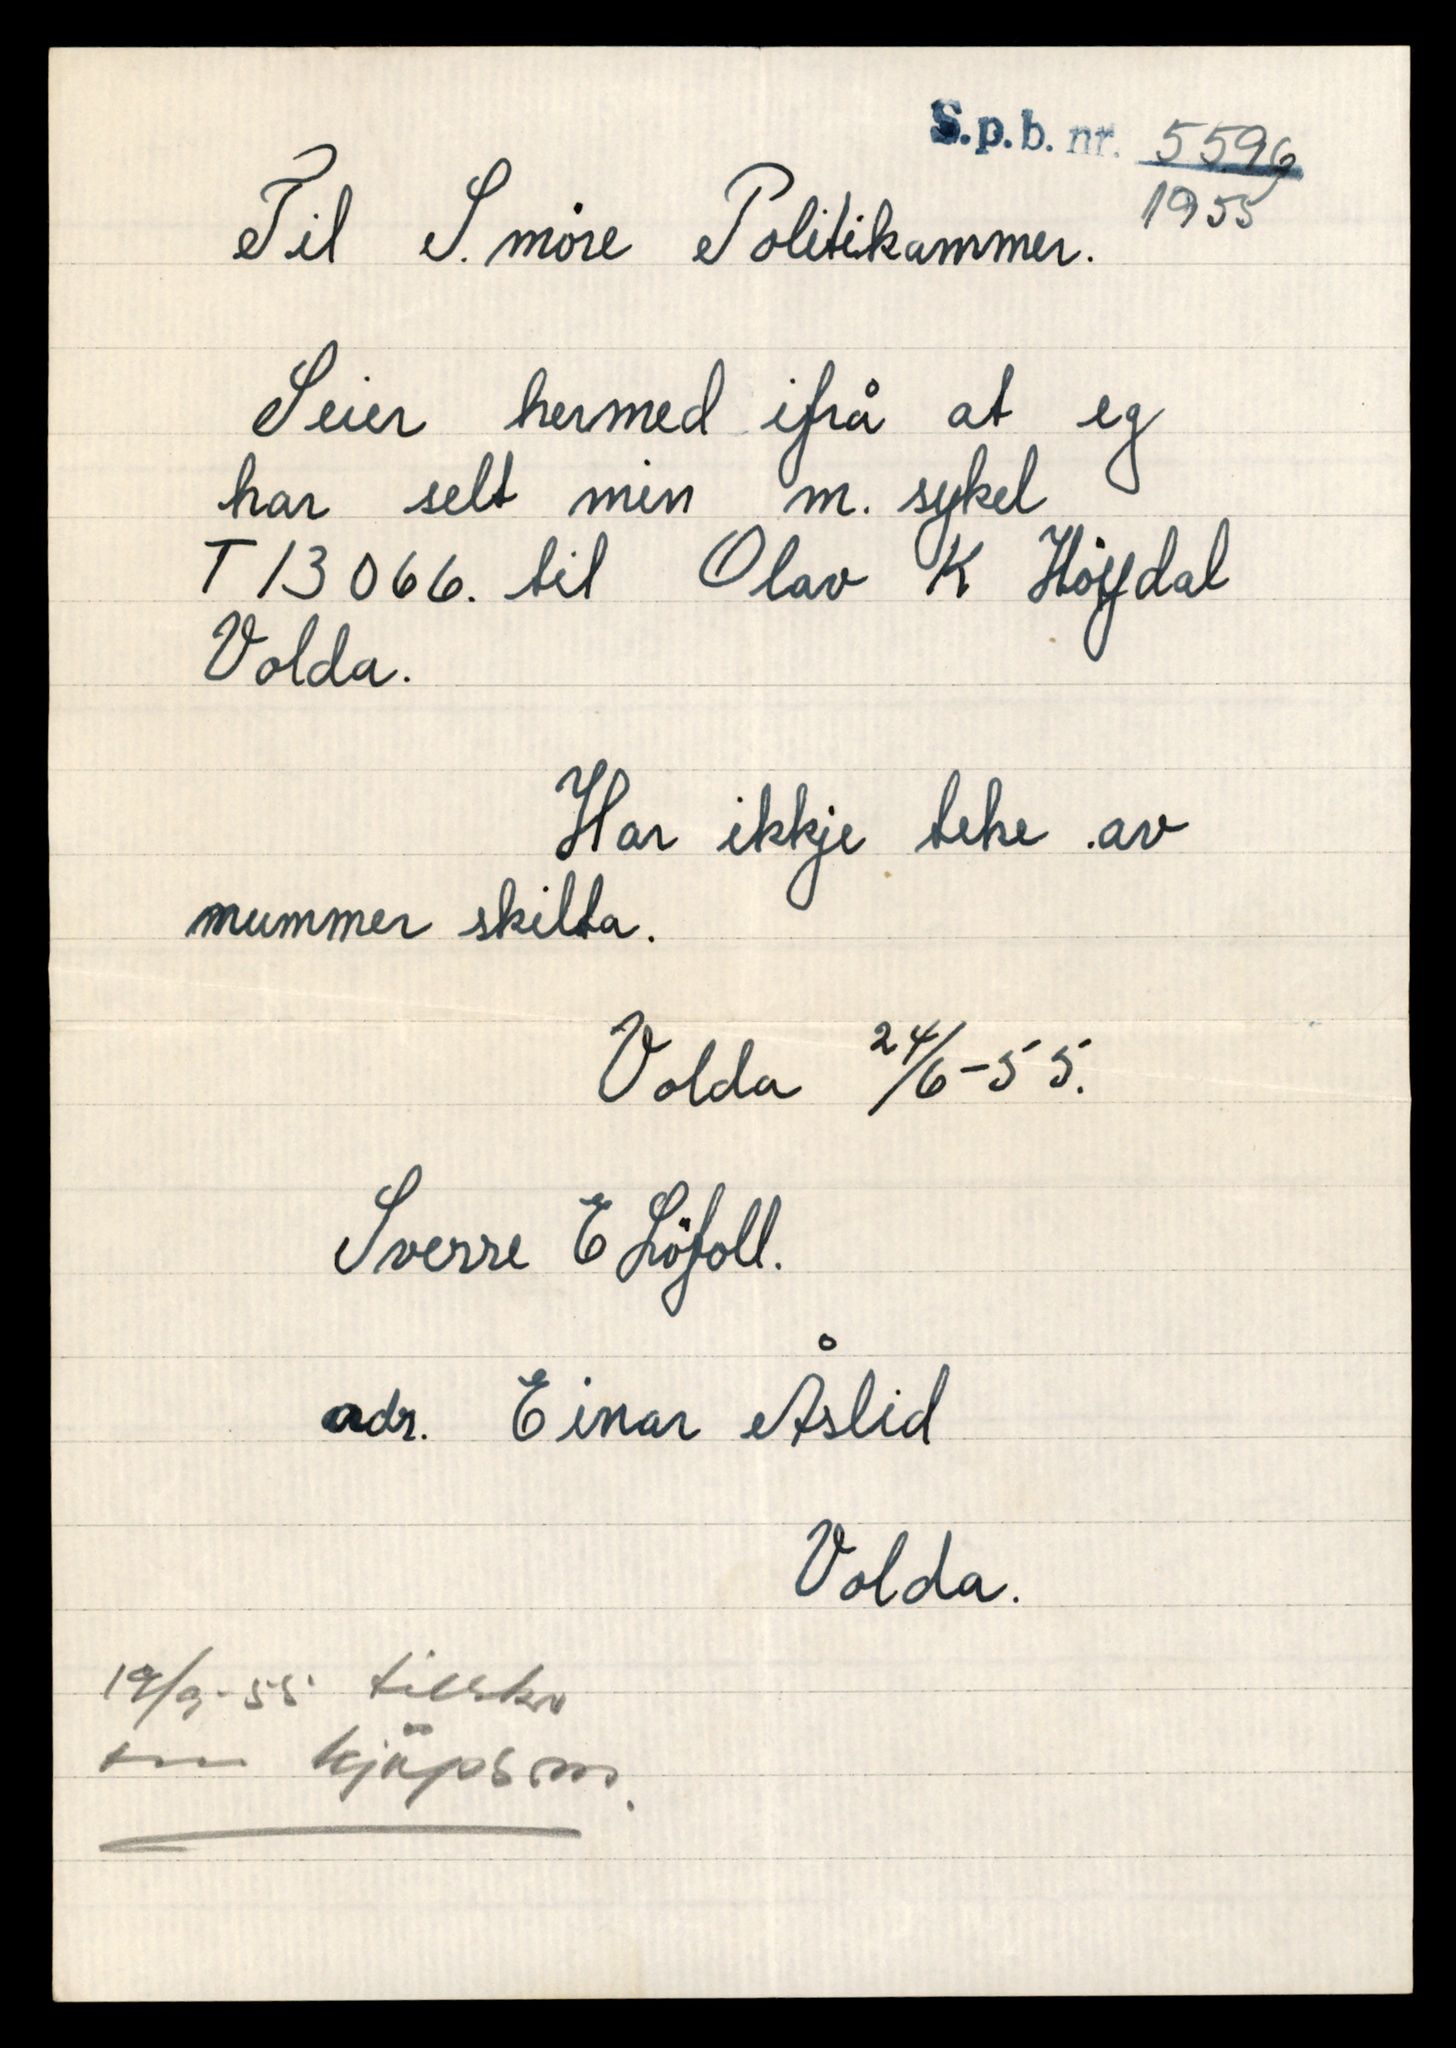 S.p.b. nr. 5596
1955
Til S. møre Politikammer.
Seier hermed ifrå at eg
har selt min m. sykel
T 13066. til Olav K Höydal
Volda.
Har ikkje teke av
nummer skilta.
Volda 24/6-55.
Sverre E Löfoll.
adr. Einar Åslid
Volda.
19/9-55 tilskr
om kjöpsm.